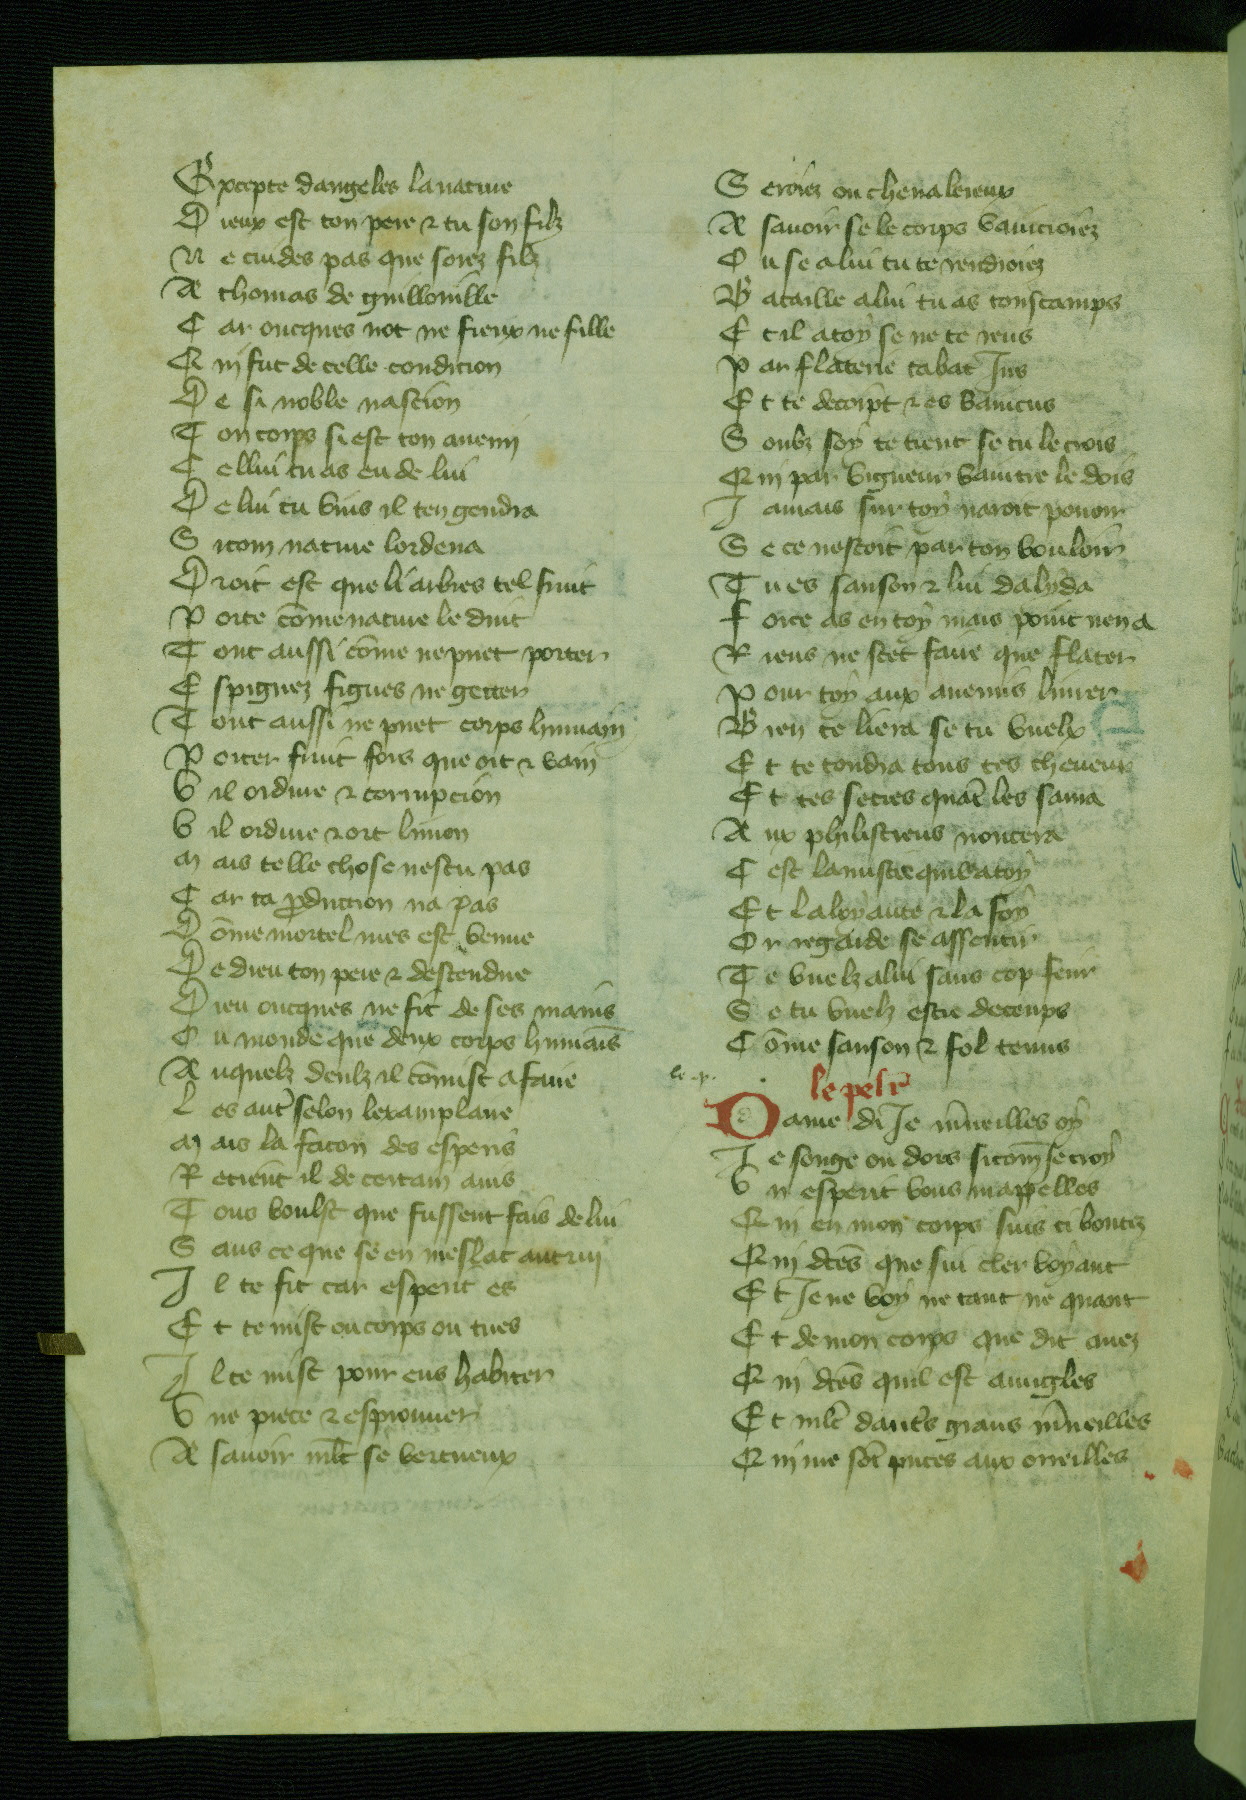 Excepte dangeles la nature
Dieux est ton pere ⁊ tu son filz
Ne cuides pas que soiez filz
A thomas de guillouille
Car oncques not ne fieux ne fille
Qui fut de celle condicion
De si noble nascion
Ton corps si est ton anemi
Cellui tu as eu de lui
De lui tu vins il ten gendra
Sicom nature lordena
Droit est que li arbres tel fruit
Porte cōme nature le duit
Tout aussi cōme ne puet porter
Espignez figues ne getter
Tout aussi ne puet corps humain
Porter fruit fors que ort ⁊ vain
Vil ordure ⁊ corrupcion
Vil ordure ⁊ ort limon
Mais telle chose nestu pas
Car ta ꝓduccion na pas
Dōme mortel mes est venue
De dieu ton pere ⁊ descendue
Dieu oncques ne fit de ses mains
Ou monde que deux corps humaīs
Auquelz deulz il cōmist a faire
Les aut̃ selon lexamplaire
Mais la facon des esperis
Retient il de certain auis
Tous voulst que fussent fais de lui
Sans ce que se en meslat autrui
Il te fit car esperit es
Et te mist ou corps ou tu es
Il te mist pour ens habiter
Vne piece ⁊ esprouuer
A sauoir mlt̃ se vertueux
Seroiez ou cheualereux
A sauoir se le corps vaincroiez
Ou se a lui tu te rendroiez
Bataille a lui tu as tous tamps
Et il a toy se ne te rens
Par flaterie tabat Jus
Et te decoipt ⁊ es vaincus
Soubz soy te tient se tu le crois
Qui par vigueur vaincre le dois
Jamais sur toy naroit pouoir
Se ce nestoit par ton vouloir
Tu es sanson ⁊ lui dalyda
Force as en toy mais point nen a
Riens ne scet faire que flater
Pour toy aux anemis liurer
Bien te liera se tu vuelx
Et te tondra tous tes cheueux
Et tes secres quāt les sara
Aux philistiens noncera
Cest lamistie quil a a toy
Et la loyaute ⁊ la foy
Or regarde se assentir
Te vuelz a lui sans cop ferir
Se tu vuelz estre deceups
Cōme sanson ⁊ fol tenus
le p.
le pelr̃
Dame di Je mr̃ueilles oy
Je songe ou dors sicom̄ Je croy
Vn esperit vous mappelles
Qui en mon corps suis ci boutez
Qui dc̃es que sui cler voyant
Et Je ne voy ne tant ne quant
Et de mon corps que dit auez
Qui dc̃es quil est auugles
Et mlt̃ daut̃es grans mr̃ueilles
Qui me sōt puces aux oreilles